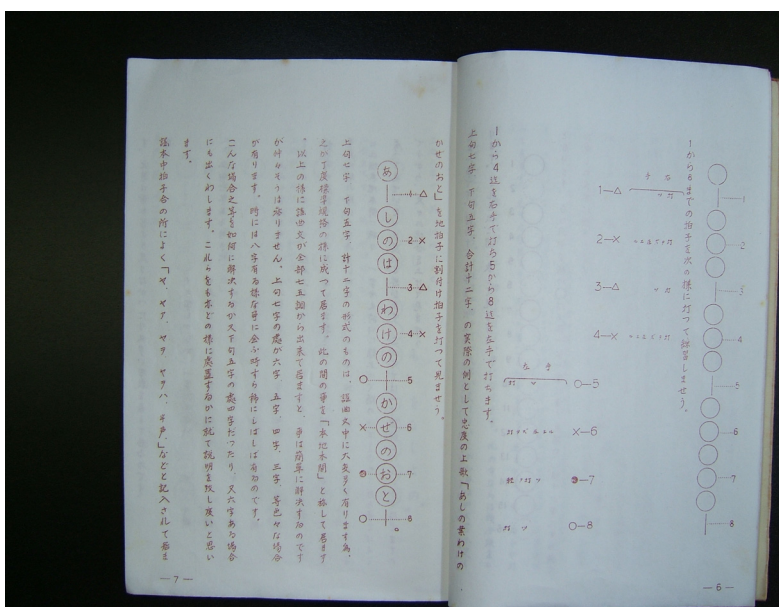 1から8までの拍子を次の様に打つて練習しませう。
1
2
3
4
5
6
7
8
右手
1—△
2—×
3—△
4—×
左手
○—5
×—6
●—7
○—8
1から4迄を右手で打ち5から8迄を左手で打ちます。
上句七字 下句五字、合計十二字、の実際の例として忠度の上歌「あしの葉わけの
—6—
かぜのおと」を地拍子に割付け拍子を打つて見ませう。
あしのはわけのかぜのおと
1 △
2 ×
3 △
4 ×
5 ○
6 ×
7 ●
8 ○
上句七字、下句五字、計十二字の形式のものは、謡曲文中に大変多く有ります為、
之が丁度標準規格の様に成つて居ます。此の間の事を「本地本間」と称して居ます
。以上の様に謡曲文が全部七五調から出来て居ますと、事は簡単に解決するのです
が仲々さうは参りません。上句七字の処が六字、五字、四字、三字、等色々な場合
が有ります。時には八字有る様な事に会ふ時すら稀にしばしば有るのです。
こんな場合之等を如何に解決するか又下句五字の処四字だつたり、又六字ある場合
にも出くわします。これらをも等どの様に処置するかに就て説明を致し度いと思い
ます。
謡本中拍子合の所によく「ヤ、ヤア、ヤヲ、ヤヲハ、」などと記入されて居ま
—7—